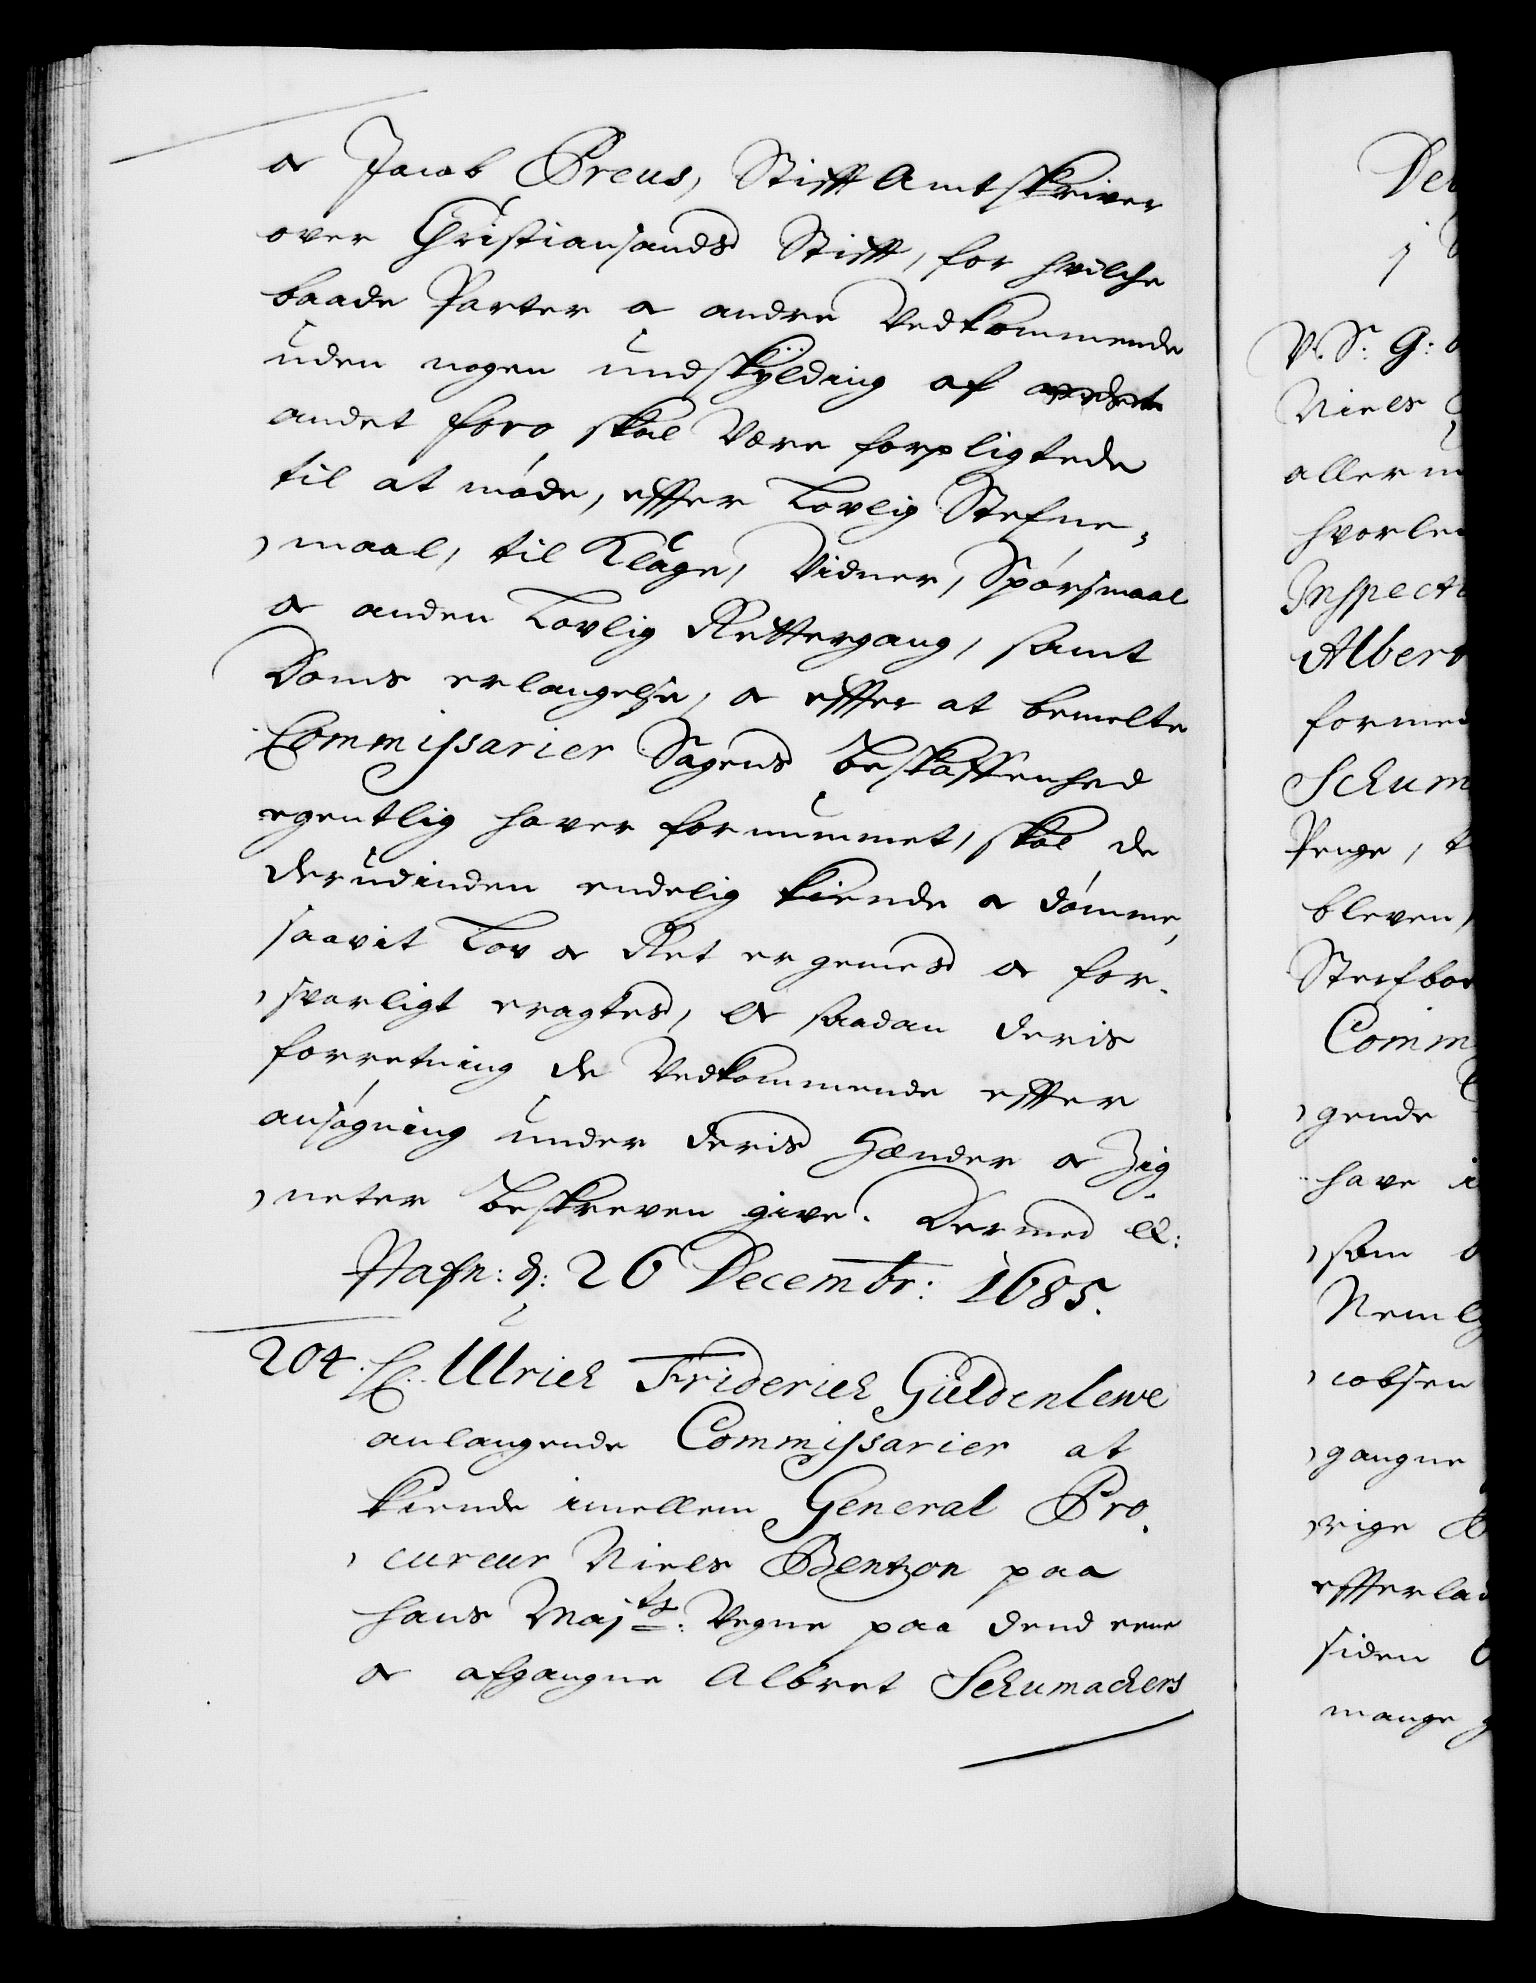 oc Jacob Preus, Stifft Amtskriver
over Christiansands Stifft, for hvilche
baade Parter oc andre Vedkommende
uden nogen undskylding af
andet foro skal være forpligtede
til at møde, effter Lovlig Stefne-
maal, til Klage, Vidner, Spørsmaal
oc anden Lovlig Rettergang, samt
Doms erlangelse, oc effter at bemelte
Commissarier Sagens Beskaffenhed
egentlig haver fornummet, skal de
derudinden endelig kiende oc dømme,
saavit Lov oc Ret er gemes oc for-
svarligt eragtes, Oc saadan deris
forretning de Vedkommende effter
ansøgning under deris Hænder oc Zig-
neter beskreven give. Dermed &:
Hafn: d: 26 Decembr: 1685.
204. Ulrich Friderich Güldenlewe
anlangende Commissarier at
kiende imellem General Pro-
cureur Niels Bentzon paa
hans Maj.ts: Vegne paa dend eene
oc afgangne Albret Schumachers
Niels
allerun
hvorle
Inspect
Albert
formed
Schum
Penge, t
bleven,
Sterfboe
Comm
gende
have i
som
Neml
cobsen
gangne
rige
effterlad
siden
mange